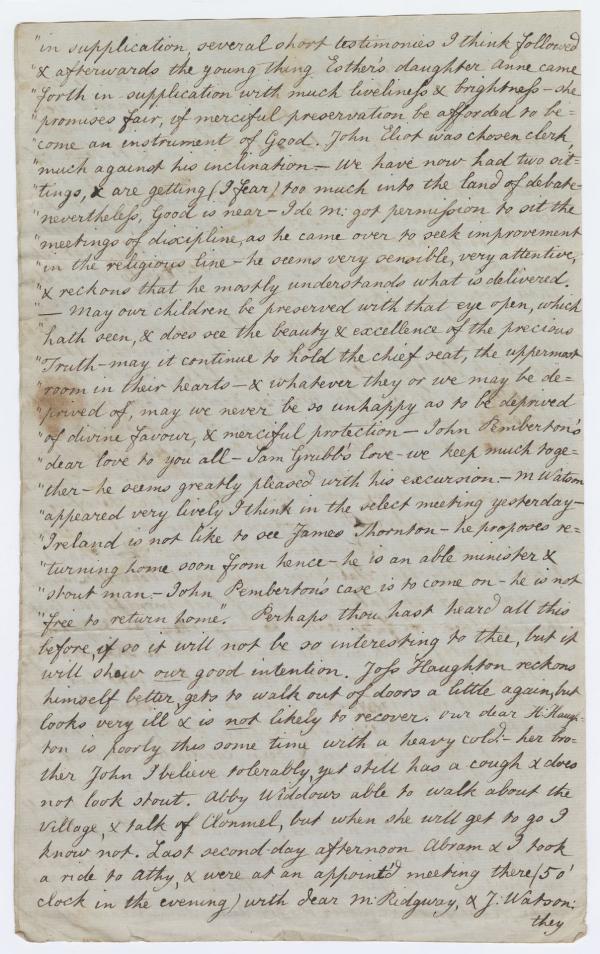 "in supplication, several short testimonies I think followed
"& afterwards the young thing Esther's daughter Anne came
"forth in supplication with much liveliness & brightness - she
"promises fair, if merciful preservation be afforded to be=
"come an instrument of Good. John Eliot was chosen clerk,
"much against his inclination - We have now had two sit=
"tings, & are getting (I fear) too much into the land of debate
"nevertheless, Good is near - I de M: got permission to sit the
"meetings of discipline, as he came over to seek improvement
"in the religious line - he seems very sensible, very attentive,
"& reckons that he mostly understands what is delivered.
"- May our children be preserved with that eye open, which
"hath seen, & does see the beauty & excellence of the precious
"Truth - may it continue to hold the chief seat, the uppermost
"room in their hearts - & whatever they or we may be de=
"prived of, may we never be so unhappy as to be deprived
"of divine favour, & merciful protection - John Pemberton's
"dear love to you all - Sam Grubb's love - we keep much toge=
"ther - he seems greatly pleased with his excursion. - M Watson
"appeared very lively I think in the select meeting yesterday -
"Ireland is not like to see James Thornton - he proposes re=
"turning home soon from hence - he is an able minister &
"stout man. - John Pemberton's case is to come on - he is not
"free to return home". Perhaps thou hast heard all this
before, if so it will not be so interesting to thee, but it
will shew our good intention. Joss Haughton reckons
himself better, gets to walk out of doors a little again, but
looks very ill & is not likely to recover. our dear H: Haugh=
ton is poorly this some time with a heavy cold: - her bro=
ther John I believe tolerably, yet still has a cough & does
not look stout. Abby Widdows able to walk about the
village, & talk of Clonmel, but when she will get to go I
know not. Last second-day afternoon Abram & I took
a ride to Athy, & were at an appointd meeting there (5 o'
clock in the evening) with dear M: Ridgway, & J. Watson:
they